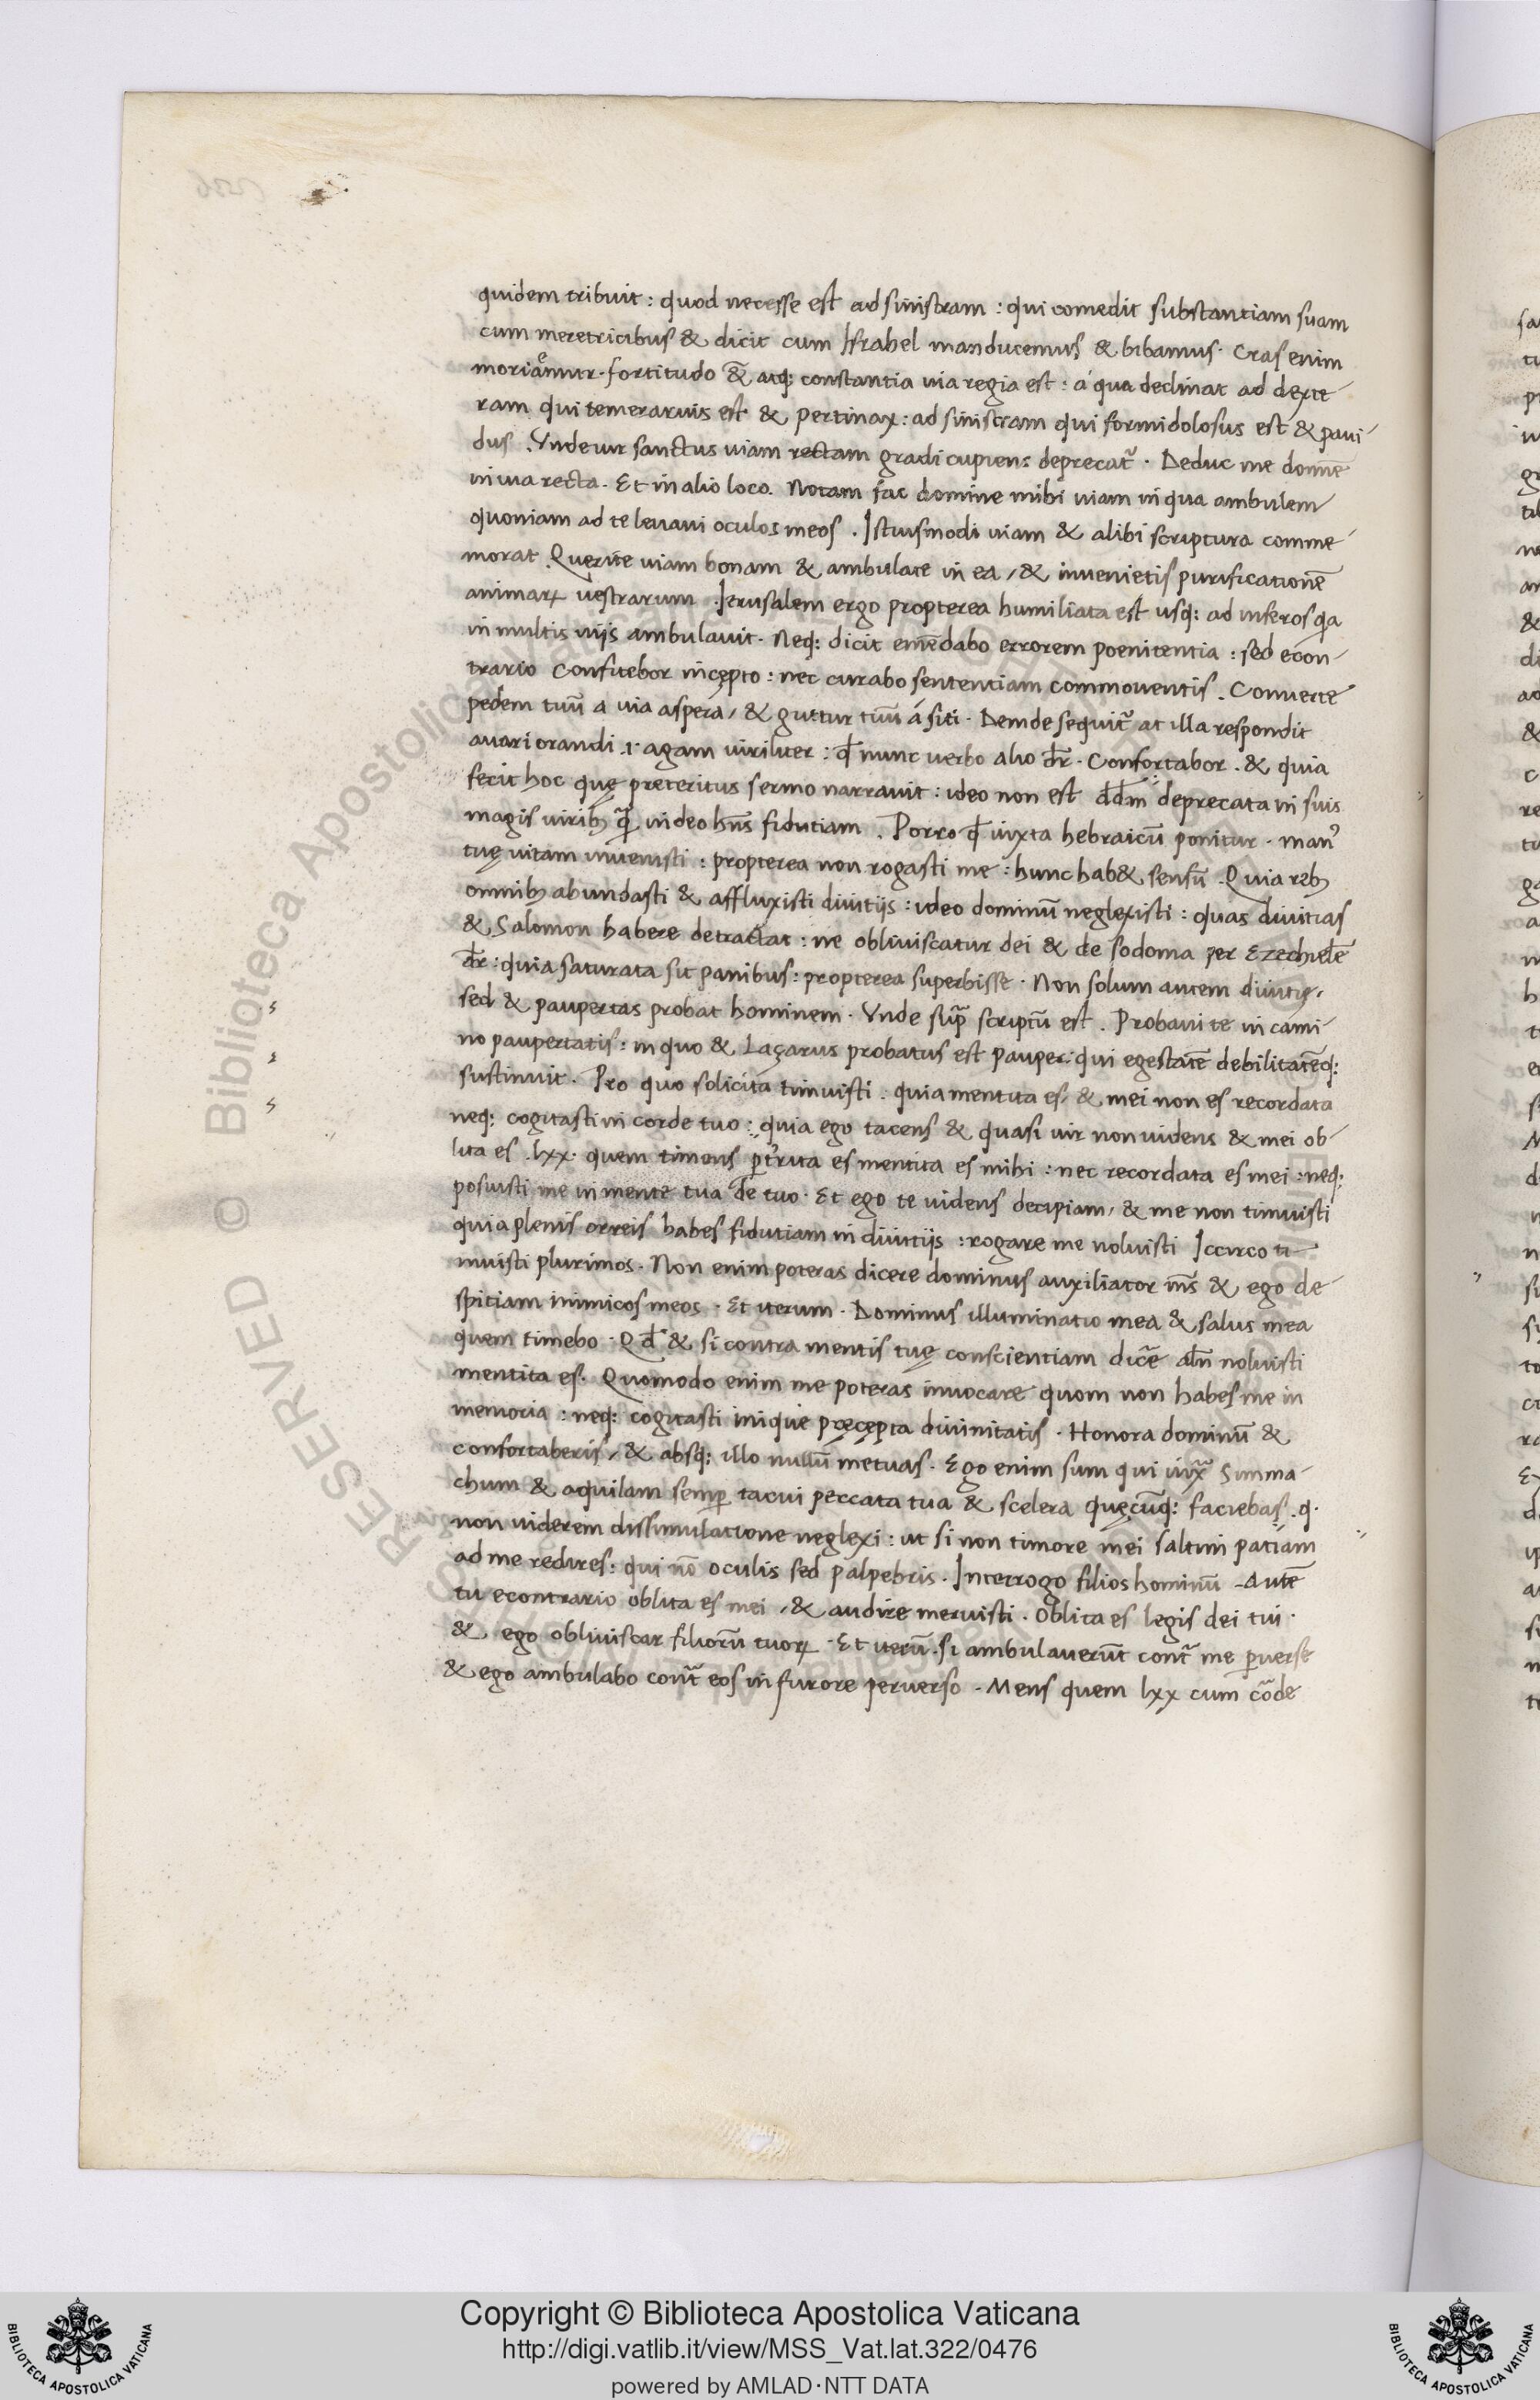 quidem tribuit : quod necesse est ad sinistram : qui comedit substantiam suam
cum meretricibus & dicit cum Israhel manducemus & bibamus. Cras enim
moriemur. fortitudo & atq; constantia uia regia est : a qua declinat ad dexte
ram qui temerarius est & pertinax : ad sinistram qui formidolosus est & paui
dus. Vnde uir sanctus uiam rectam gradi cupiens deprecat᷑. Deduc me domine
in uia recta. Et in alio loco. Notam fac domine mihi uiam in qua ambulem
quoniam ad te leuaui oculos meos. Istiusmodi uiam & alibi scriptura comme
morat. Querite uiam bonam & ambulate in ea, & inuenietis purificationē
animaꝝ uestrarum. Ierusalem ergo propterea humiliata est usq; ad inferos qa
in multis uijs ambulauit. Neq; dicit emēdabo errorem poenitentia : sed econ
trario Confitebor incępto : nec curabo sententiam commouentis. Conuerte
pedem tuū a uia aspera, & guttur tuū a siti. Deinde sequit᷑ at illa respondit
auari orandi .i. agam uiriliter : qđ nunc uerbo alio dr̄. Confortabor. & quia
fecit hoc quę preteritus sermo narrauit : ideo non est dd̄m deprecata in suis
magis uirib; q̄ in deo hn̄s fidutiam. Porro qđ iuxta hebraicū ponitur. man᾽
tuę uitam inuenisti : propterea non rogasti me : hunc hab& sensū. Quia reb;
omnib; abundasti & affluxisti diuitijs : ideo dominū neglexisti : quas diuitias
& Salomon habere detractat : ne obliuiscatur dei & de sodoma per Ezechielē
dr̄ : quia saturata sit panibus : propterea superbisse. Non solum autem diuitię,
sed & paupertas probat hominem. Vnde supͣ scriptū est. Probaui te in cami
no paupertatis : in quo & Laçarus probatus est pauper : qui egestatē debilitatēq;
sustinuit. Pro quo solicita timuisti. quia mentita es, & mei non es recordata
neq; cogitasti in corde tuo : quia ego tacens & quasi uir non videns & mei ob
lita es. lxx. quem timens ꝑt᾽rita es mentita es mihi : nec recordata es mei : neq;
posuisti me in mente tua de tuo. Et ego te videns decipiam, & me non timuisti
quia plenis orreis habes fidutiam in diuitijs : rogare me noluisti Iccirco ti
muisti plurimos. Non enim poteras dicere dominus auxiliator m̄s & ego de
spiciam inimicos meos. Et iterum. Dominus illuminatio mea & salus mea
quem timebo. Qđ & si contra mentis tuę conscientiam dicē al̄n noluisti
mentita es. Quomodo enim me poteras inuocare quom non habes me in
memoria : neq; cogitasti inique pręcępta diuinitatis. Honora dominū &
confortaberis, & absq; illo nullū metuas. Ego enim sum qui iuxͣ Simma
chum & aquilam semꝑ tacui peccata tua & scelera quęcūq; faciebas. q.
non viderem dissimulatione neglexi : ut si non timore mei saltim patiam
ad me redires : qui nō oculis sed palpebris. Interrogo filios hominū. Autē
tu econtrario oblita es mei, & audire meruisti. Oblita es legis dei tui.
& ego obliuiscar filiorū tuoꝝ. Et iterū. si ambulauerūt contͣ me ꝑuerse
& ego ambulabo contͣ eos in furore peruerso. Mens quem lxx cum cōde
Copyright © Biblioteca Apostolica Vaticana
http://digi.vatlib.it/view/MSS_Vat.lat.322/0476
powered by AMLAD·NTT DATA